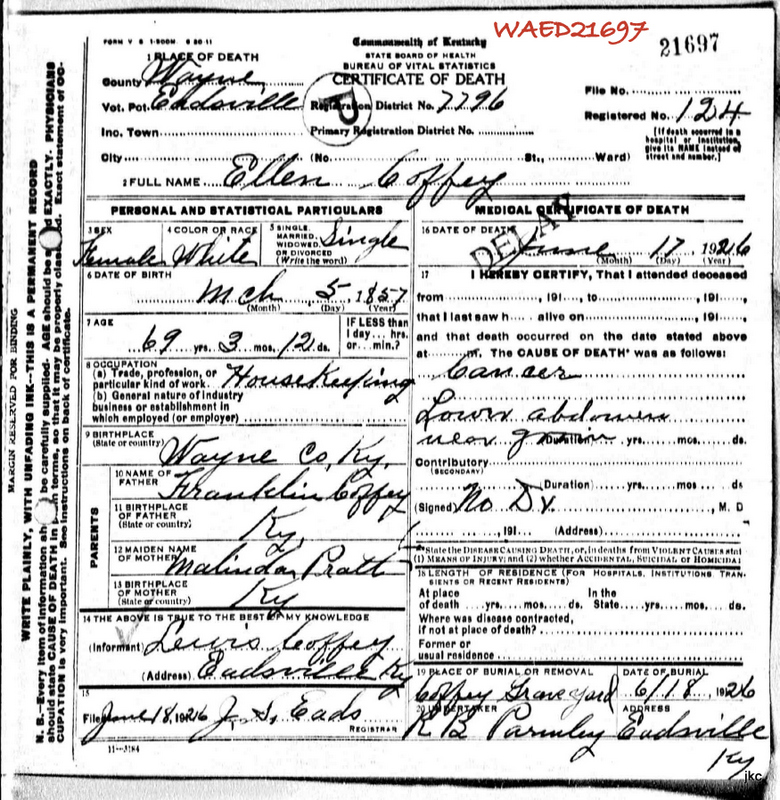 WAED21697
21697
FORM V S 1-500M 6-20-11
Commonwealth of Kentucky
STATE BOARD OF HEALTH
BUREAU OF VITAL STATISTICS
CERTIFICATE OF DEATH
1 PLACE OF DEATH
County Wayne
Vot. Pct. Eadsville Registration District No. 7796
Inc. Town Primary Registration District No.
City (No. St., Ward)
File No.
Registered No. 124
[If death occurred in a hospital or institution, give its NAME instead of street and number.]
2 FULL NAME Ellen Coffey
PERSONAL AND STATISTICAL PARTICULARS
3 SEX Female
4 COLOR OR RACE White
5 SINGLE, MARRIED, WIDOWED, OR DIVORCED (Write the word) Single
6 DATE OF BIRTH
Mch 5 1857
(Month) (Day) (Year)
7 AGE
69 yrs. 3 mos. 12 ds.
IF LESS than 1 day ... hrs. or ... min.?
8 OCCUPATION
(a) Trade, profession, or particular kind of work Housekeeping
(b) General nature of industry business or establishment in which employed (or employer)
9 BIRTHPLACE
(State or country) Wayne Co, Ky.
PARENTS
10 NAME OF FATHER Franklin Coffey
11 BIRTHPLACE OF FATHER (State or country) Ky,
12 MAIDEN NAME OF MOTHER Malinda Pratt
13 BIRTHPLACE OF MOTHER (State or country) Ky
14 THE ABOVE IS TRUE TO THE BEST OF MY KNOWLEDGE
(Informant) Lewis Coffey
(Address) Eadsville Ky
15
Filed June 18, 1926 J. S. Eads
REGISTRAR
11-3184
MEDICAL CERTIFICATE OF DEATH
DELAY
16 DATE OF DEATH
June 17 1926
(Month) (Day) (Year)
17 I HEREBY CERTIFY, That I attended deceased
from , 191 , to , 191 ,
that I last saw h alive on , 191 ,
and that death occurred on the date stated above
at m. The CAUSE OF DEATH* was as follows:
Cancer
Lower abdomen
near groin (Duration) yrs. mos. ds
Contributory
(SECONDARY)
(Duration) yrs. mos. ds
(Signed) No Dr. , M. D
, 191 (Address)
*State the DISEASE CAUSING DEATH, or, in deaths from VIOLENT CAUSES stat
(1) MEANS OF INJURY; and (2) whether ACCIDENTAL, SUICIDAL or HOMICIDAL
18 LENGTH OF RESIDENCE (FOR HOSPITALS, INSTITUTIONS, TRANSIENTS OR RECENT RESIDENTS)
At place of death yrs. mos. ds. In the State yrs. mos. ds.
Where was disease contracted, if not at place of death?
Former or usual residence
19 PLACE OF BURIAL OR REMOVAL
Coffey Graveyard
DATE OF BURIAL
6/18, 1926
20 UNDERTAKER
R B Parmley
ADDRESS
Eadsville
Ky
jkc
MARGIN RESERVED FOR BINDING
WRITE PLAINLY, WITH UNFADING INK--THIS IS A PERMANENT RECORD
N. B.--Every item of information should be carefully supplied. AGE should be stated EXACTLY. PHYSICIANS
should state CAUSE OF DEATH in plain terms, so that it may be properly classified. Exact statement of OC-
CUPATION is very important. See instructions on back of certificate.